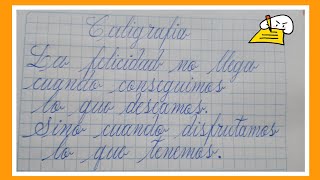 Caligrafia
La felicidad no llega
cuando conseguimos
lo que deseamos.
Sino cuando disfrutamos
lo que tenemos.